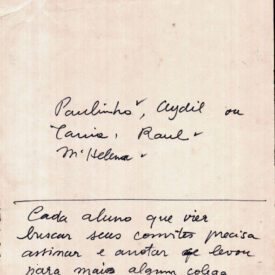 Paulinho, Aydil ou
Tania, Raul
Mª Helena
Cada aluno que vier
buscar seus convites precisa
assinar e anotar se levou
para mais algum colega